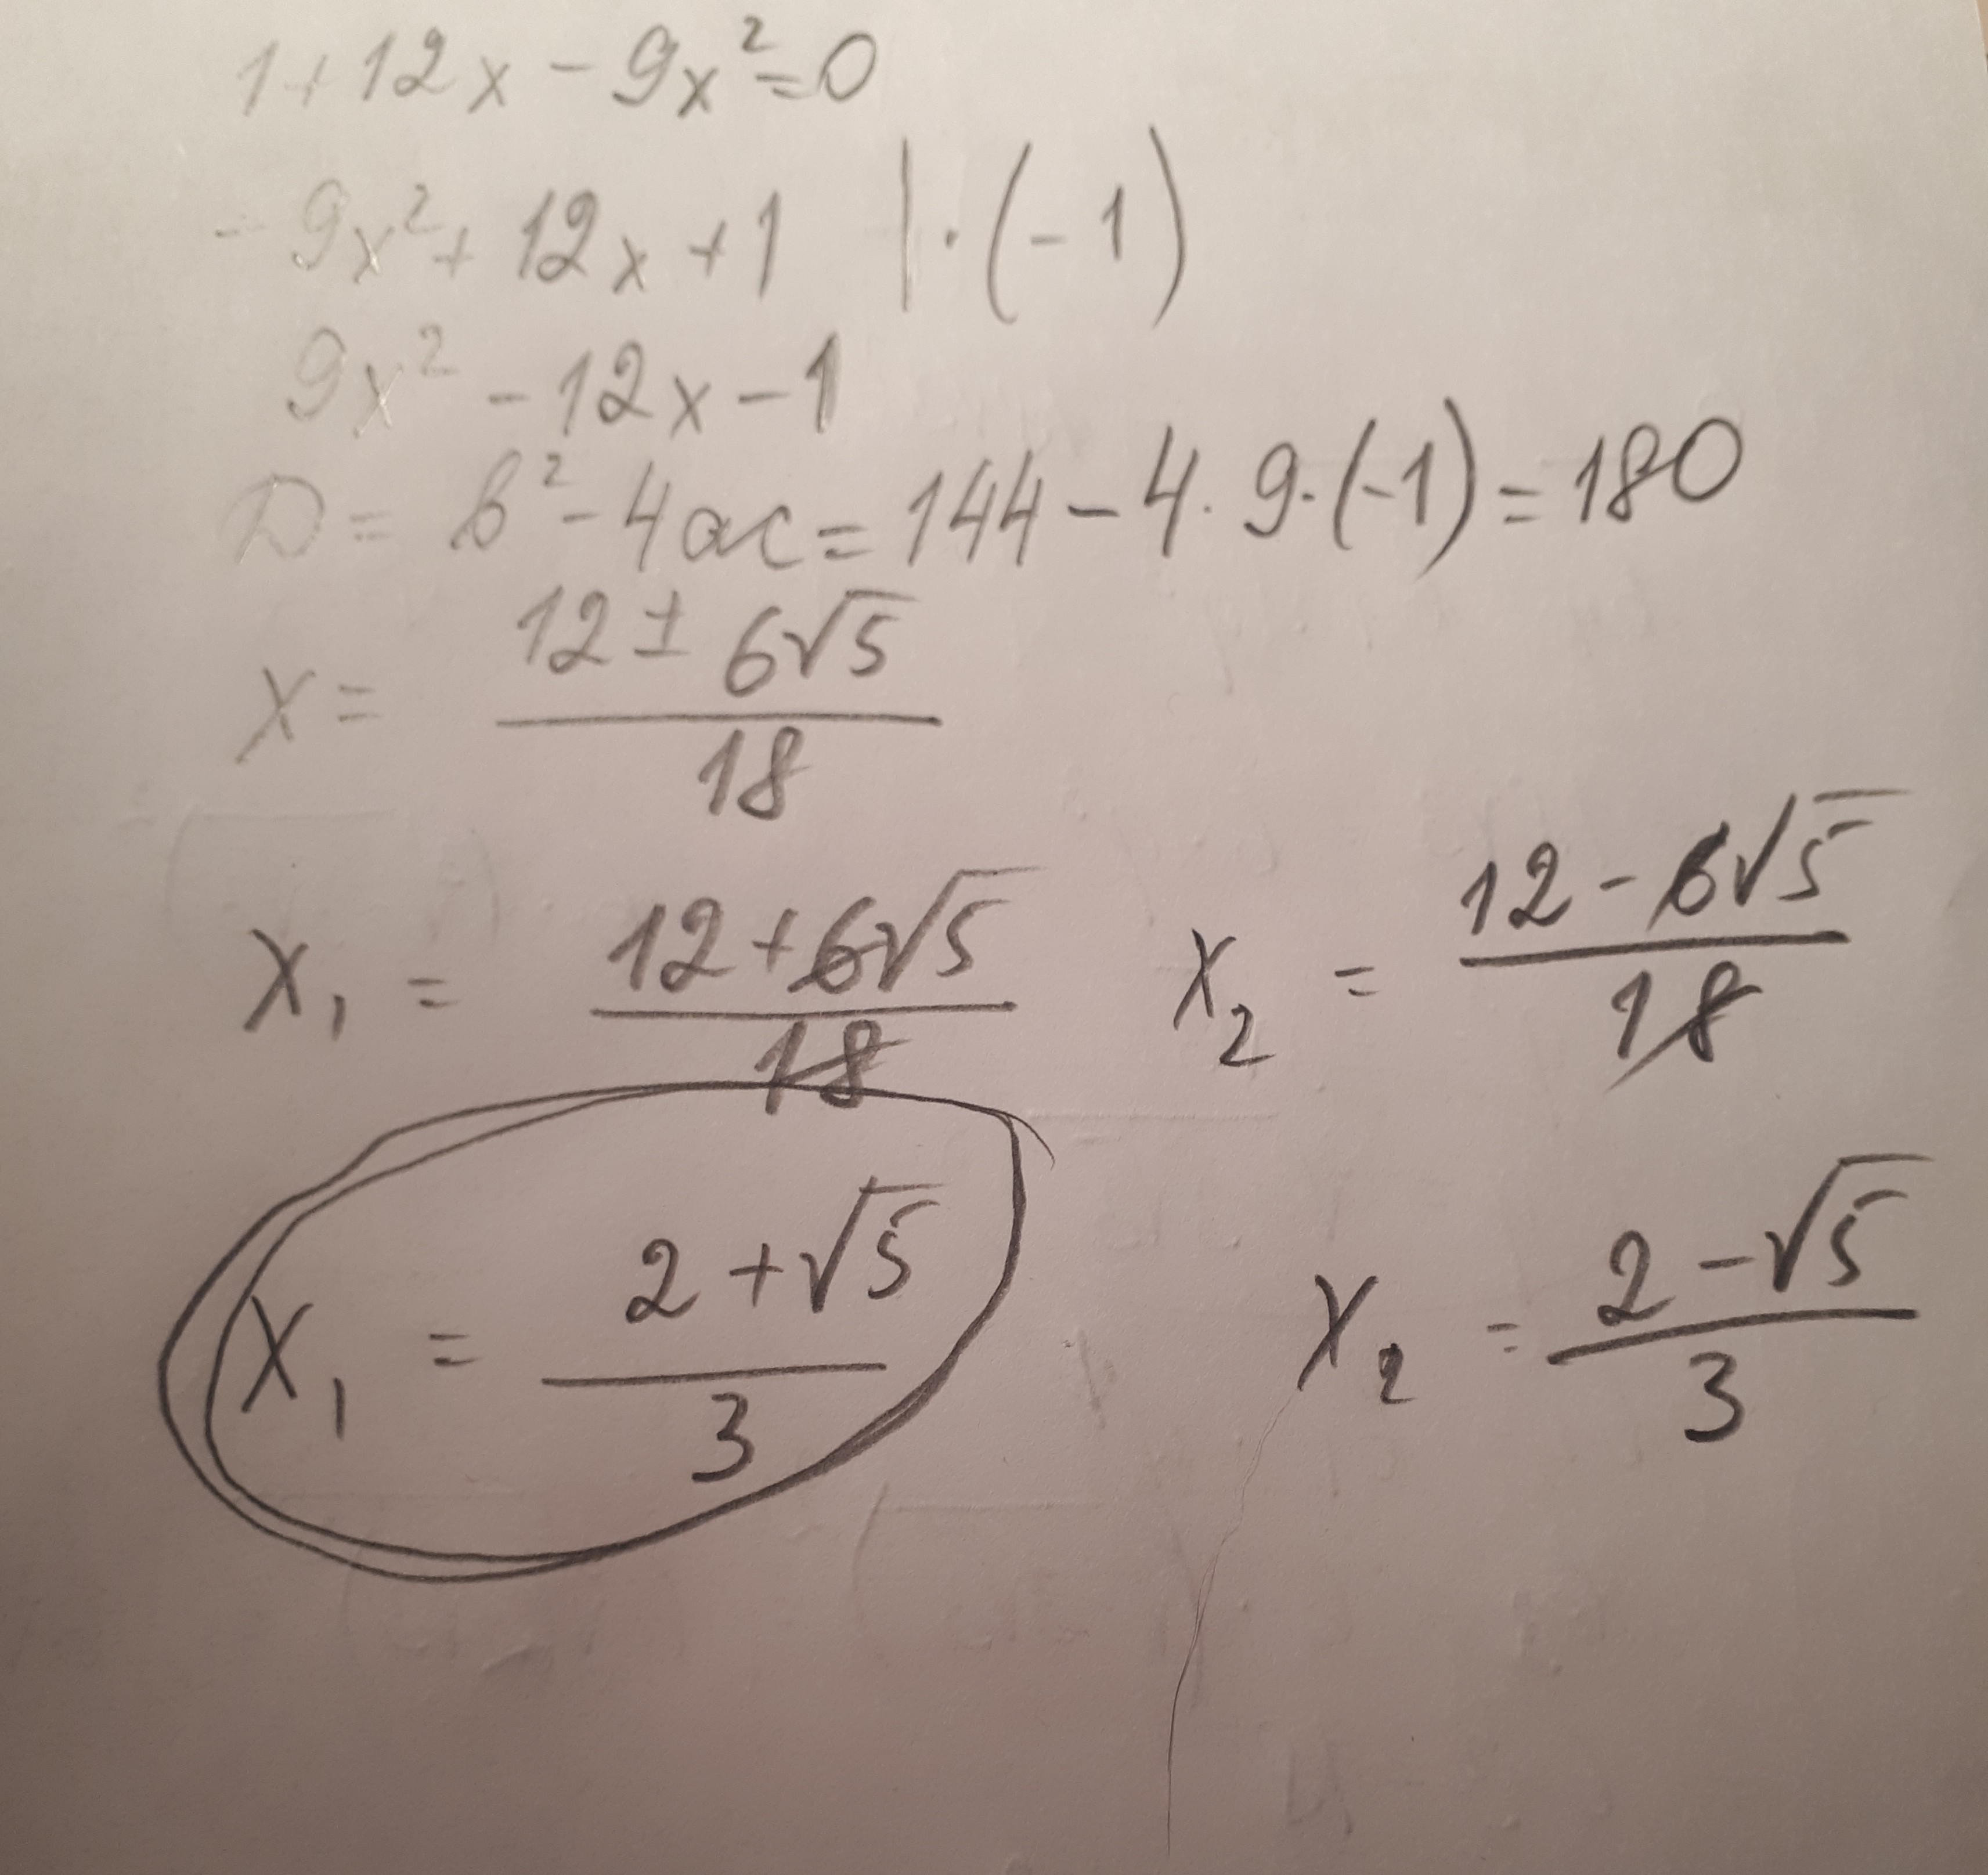 1+12x-9x²=0
-9x²+12x+1 |·(-1)
9x²-12x-1
D=b²-4ac=144-4·9·(-1)=180
x= (12±6√5)/18
x₁ = (12+6√5)/18 x₂ = (12-6√5)/18
x₁ = (2+√5)/3 x₂ = (2-√5)/3